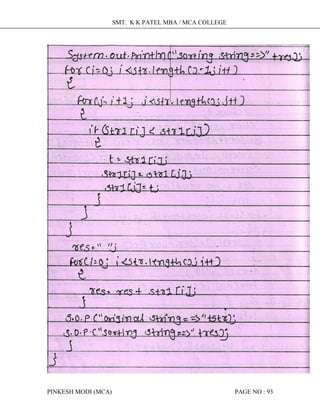 SMT. K K PATEL MBA / MCA COLLEGE
System.out.println("sorting string==>" + res);
for (i=0; i<str.length()-1; i++)
{
for(j=i+1; j<str.length(); j++)
{
if (str1[i] < str1[j])
{
t = str1[i];
str1[i]=str1[j];
str1[j]=t;
}
}
}
res=" ";
for(i=0; i<str.length(); i++)
{
res= res + str1[i];
}
S.O.P("original string= =>"+str);
S.O.P.("sorting string==>" +res);
}
}
PINKESH MODI (MCA) PAGE NO : 93